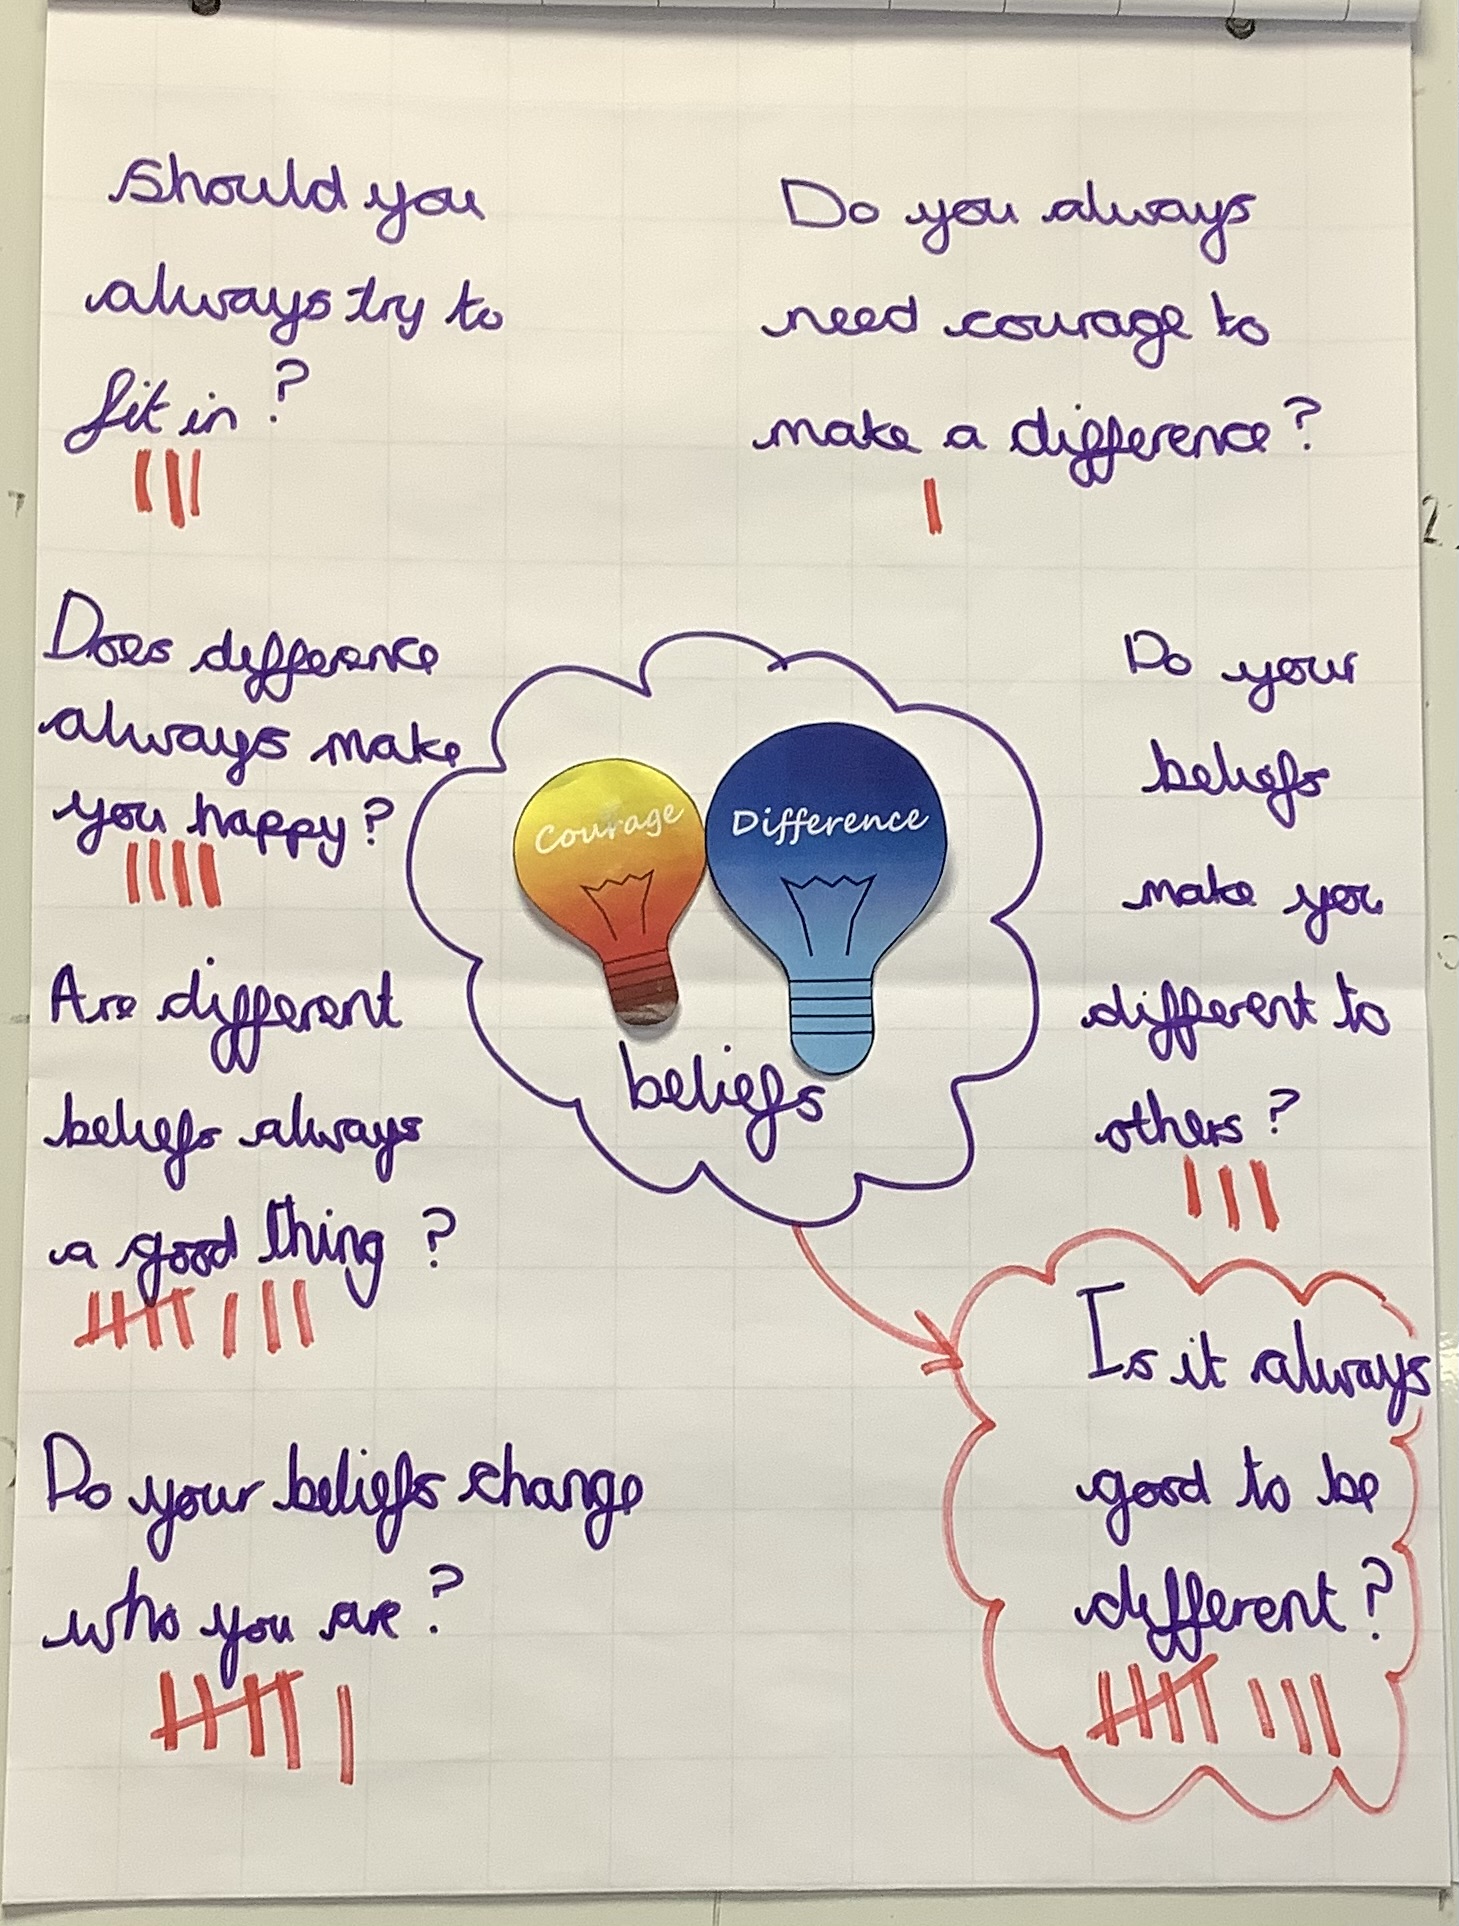 Should you
always try to
fit in?
Do you always
need courage to
make a difference?
Does difference
always make
you happy?
Are different
beliefs always
a good thing?
Do your beliefs change
who you are?
Courage
Difference
beliefs
Do your
beliefs
make you
different to
others?
Is it always
good to be
different?
2